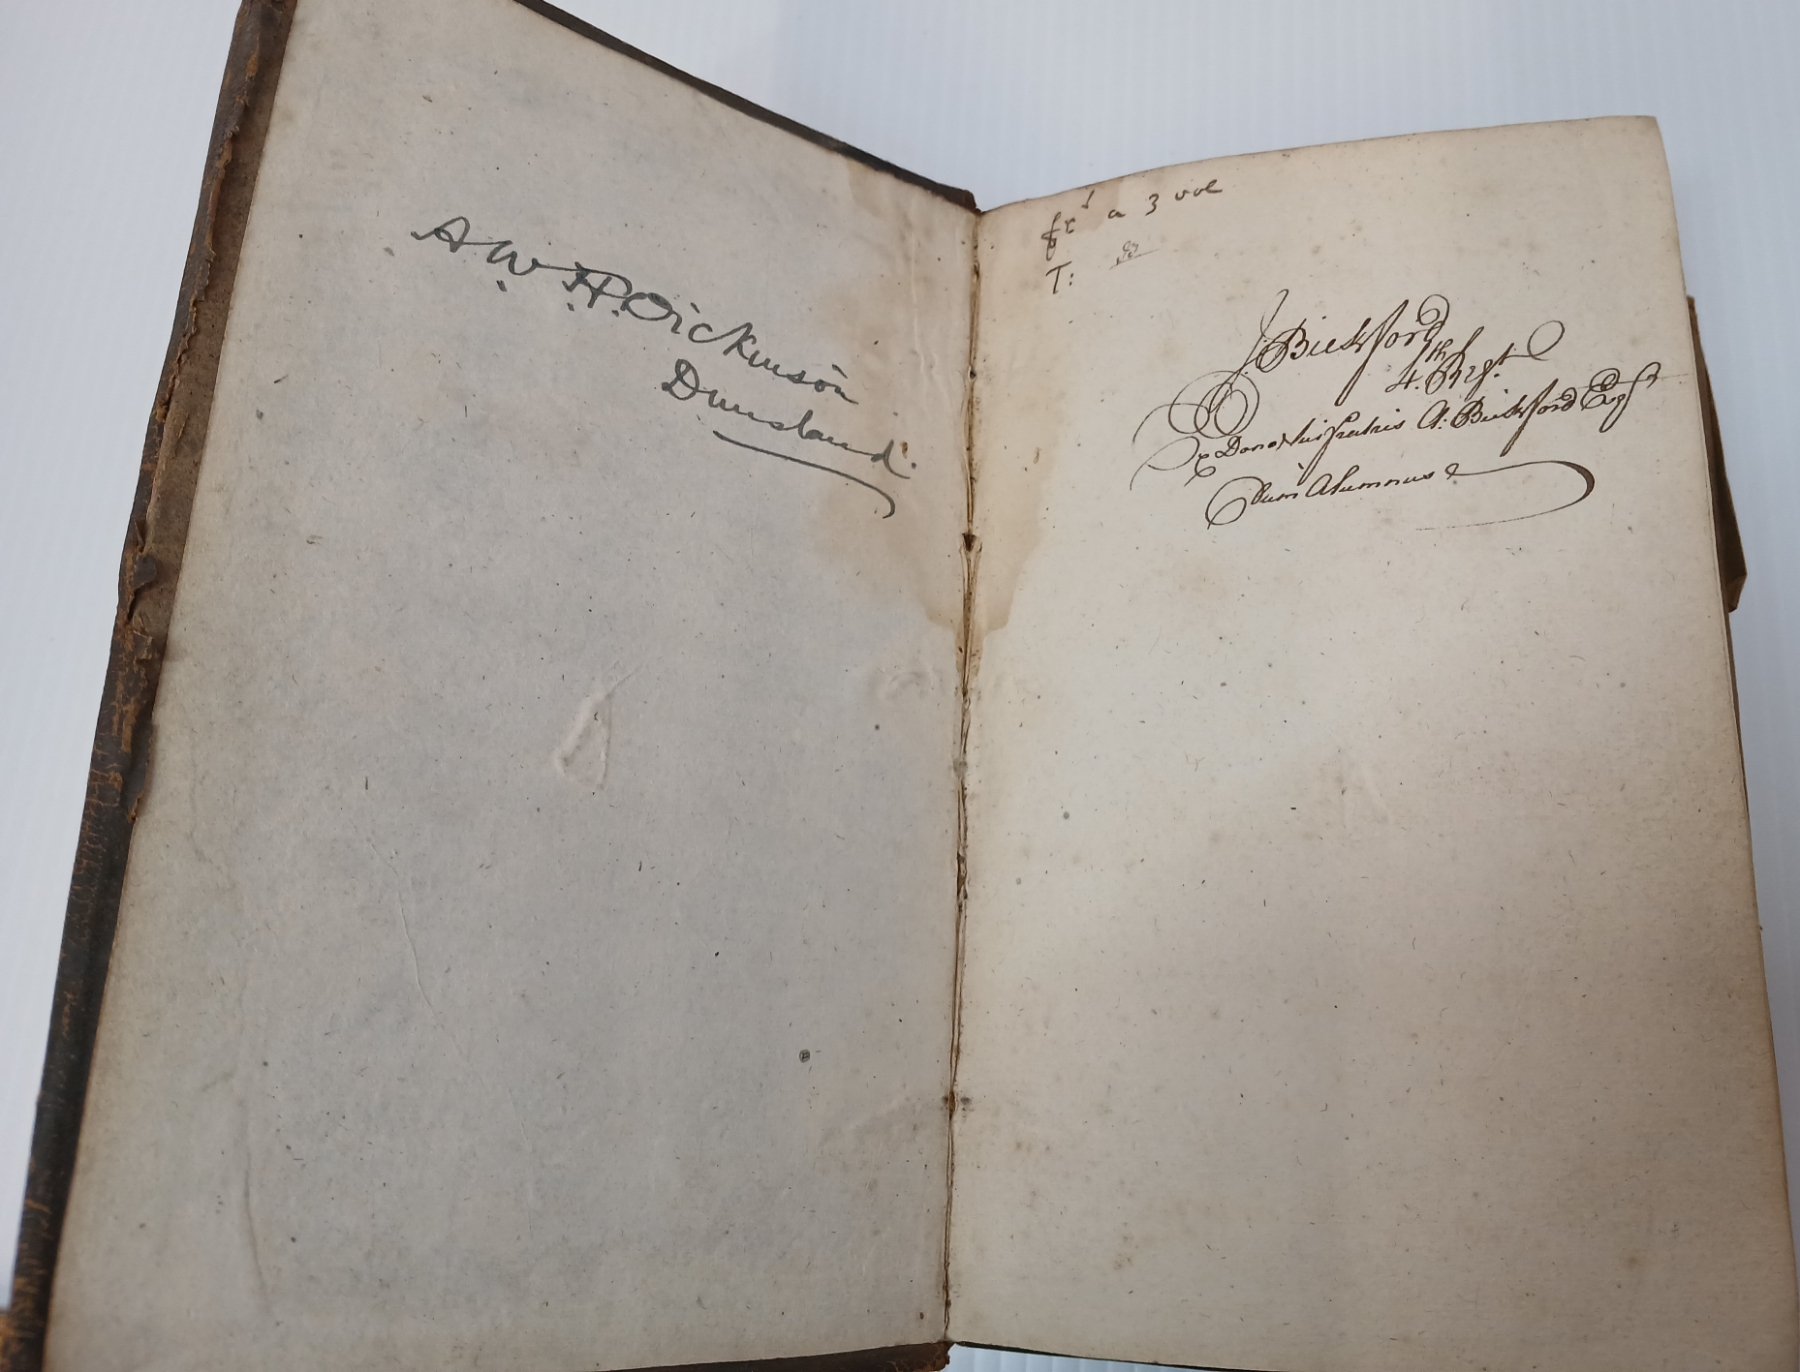 A. W. H. Dickinson
Dunsland.
a 3 vol
T:
J. Bickford
4th Regt
Ex Dono sui fratris A: Bickford Esqr
Alumnus